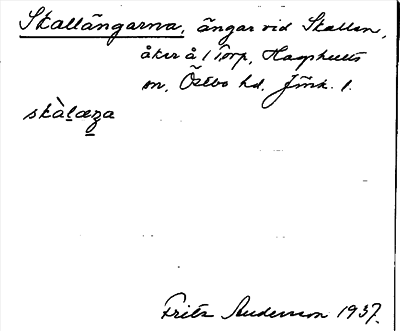 Skallängarna, ängar vid Skallen,
åker å 1 Torp, Hagshults
sn, Östbo hd. Jönk. l.
skàlæza
Fritz Anderson 1937.